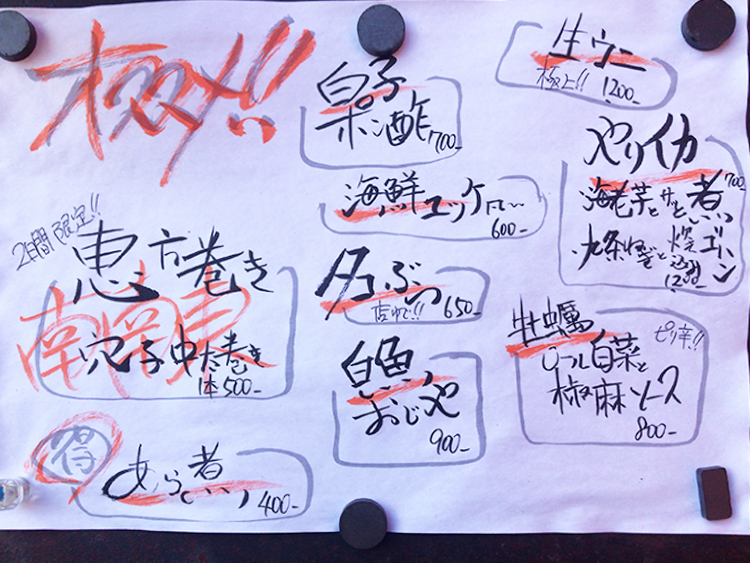 オススメ!!
生ウニ
極上!! 1200-
白子
ポン酢
700-
ヤリイカ
700
海老芋とサッと煮
九条ねぎと炊込ゴハン
1200-
海鮮ユッケ
600-
2日間限定!!
恵方巻き
南南東
穴子中太巻き
1本500-
タコぶつ
店ゆで!! 650-
牡蠣
ピリ辛!!
ロール白菜と
椒麻ソース
800-
白魚
おじや
900-
得
あら煮
400-